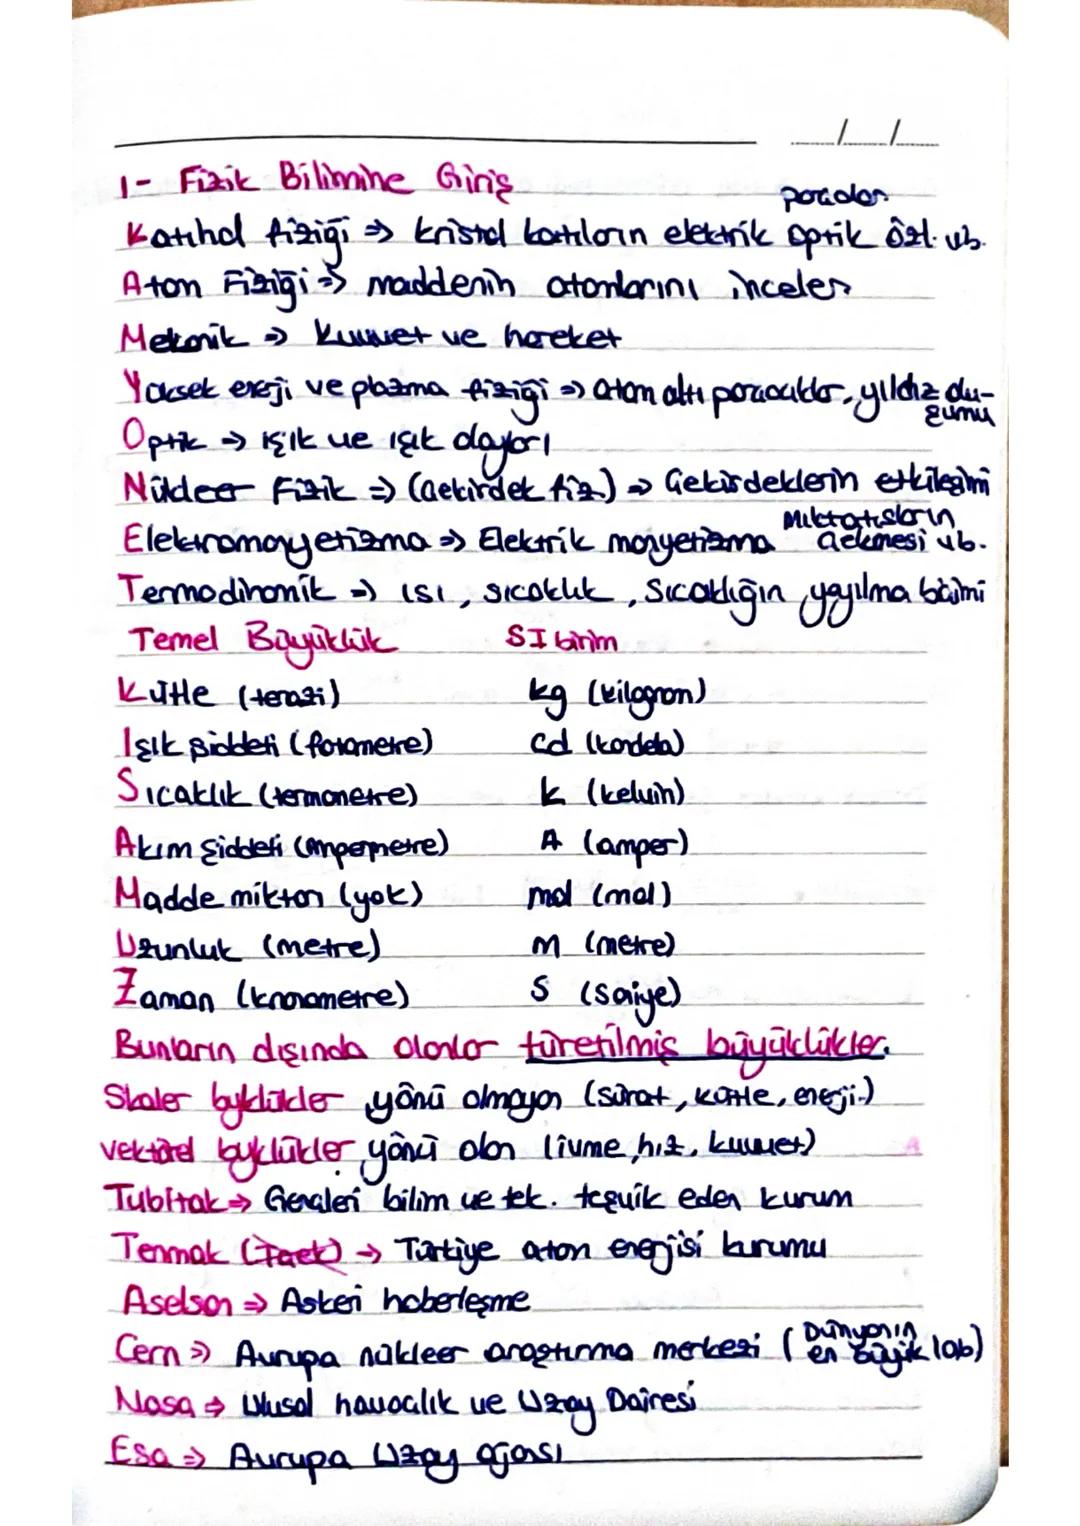 __/__/__
1- Fizik Bilimine Giriş
Katıhal fiziği => kristal katıların elektrik optik özl. vb.
Aton Fiziği => maddenin atomlarını inceler
Mekanik => Kuvvet ve hareket
Yüksek enerji ve plazma fiziği => atom altı parçacıklar, yıldız du-
zumu
Optik => ışık ve ışık olayları
Nükleer Fizik => (Çekirdek fiz.) => Çekirdeklerin etkileşimi
Elektromanyetizma => Elektrik manyetizma Mıknatısların çekmesi vb.
Termodinamik => ısı, sıcaklık, sıcaklığın yayılma biçimi
Temel Büyüklük SI birim
Kütle (terazi) kg (kilogram)
Işık şiddeti (fotometre) cd (kandela)
Sıcaklık (termometre) k (kelvin)
Akım şiddeti (ampermetre) A (amper)
Madde miktarı (yok) mol (mol)
Uzunluk (metre) m (metre)
Zaman (kronometre) s (saniye)
Bunların dışında olanlar türetilmiş büyüklükler.
Skaler byklükler yönü olmayan (sürat, kütle, enerji.)
vektörel byklükler yönü olan (ivme, hız, kuvvet)
Tubitak => Gençleri bilim ve tek. teşvik eden kurum
Tenmak (Taek) -> Türkiye atom enerjisi kurumu
Aselsan => Askeri haberleşme
Cern => Avrupa nükleer araştırma merkezi (Dünyanın en büyük lab)
Nasa => Ulusal havacılık ve Uzay Dairesi
Esa => Avrupa Uzay ajansı